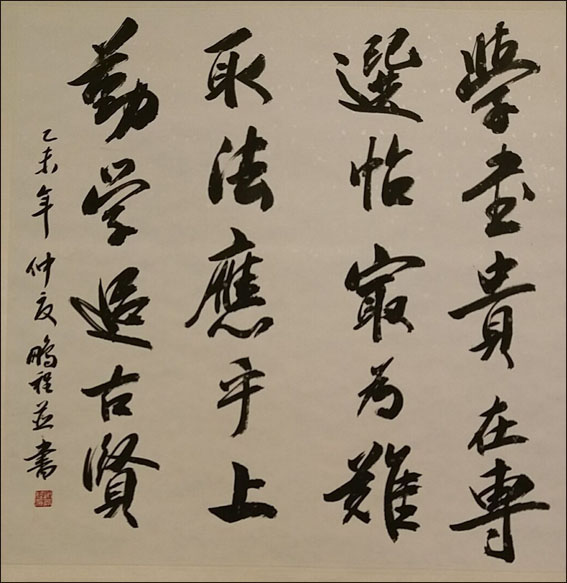 學書貴在專
選帖寂為難
取法應乎上
勤学追古賢
乙未年仲夏鵬程並書